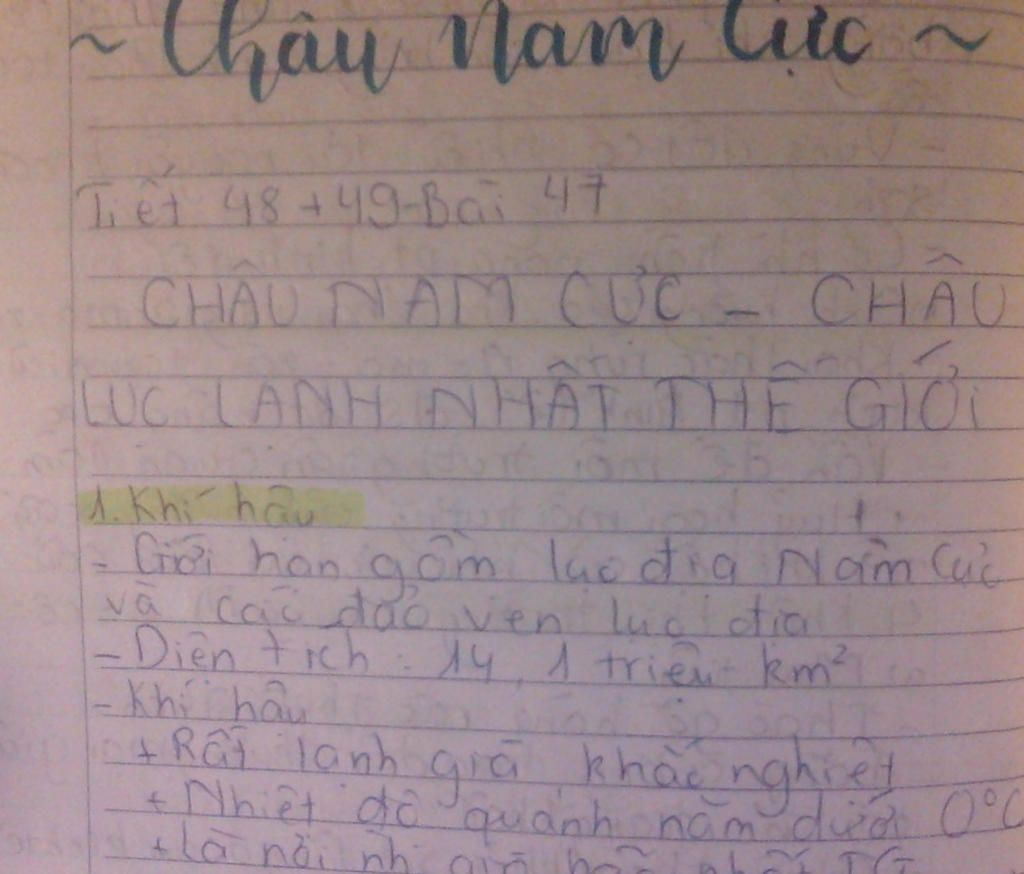 ~ Châu Nam Cực ~
Tiết 48 + 49 - Bài 47
CHÂU NAM CỰC - CHÂU
LỤC LẠNH NHẤT THẾ GIỚI
1. Khí hậu
- Giới hạn gồm lục địa Nam Cực
và các đảo ven lục địa
- Diện tích : 14,1 triệu km²
- Khí hậu
+ Rất lạnh giá, khắc nghiệt
+ Nhiệt độ quanh năm dưới 0°C
+ Là nơi nh gió bão nhất TG